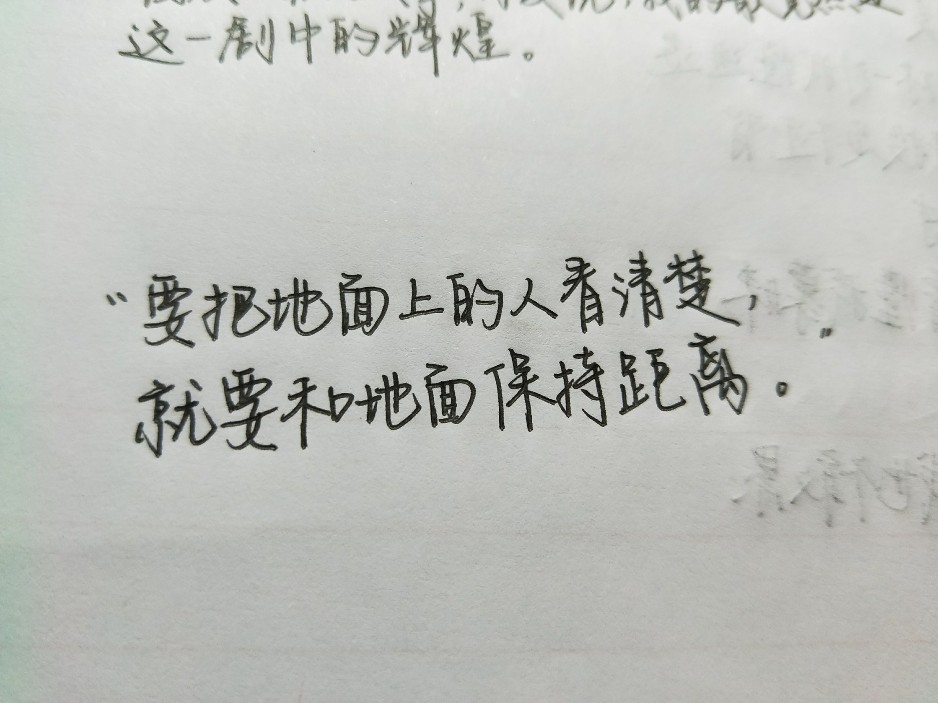 这一剧中的辉煌。
“要把地面上的人看清楚，
就要和地面保持距离。”